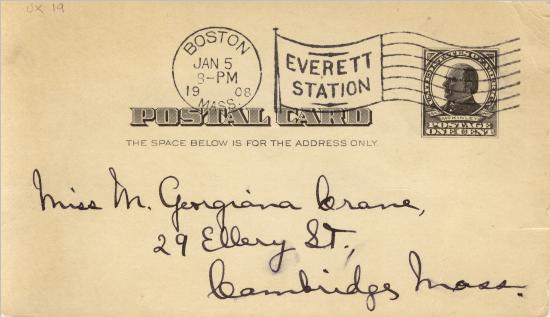 UX 19
BOSTON
JAN 5
8-PM
19 08
MASS.
EVERETT
STATION
POSTAL CARD
McKINLEY
POSTAGE
ONE CENT
THE SPACE BELOW IS FOR THE ADDRESS ONLY.
Miss M. Georgiana Crane,
29 Ellery St.,
Cambridge, Mass.